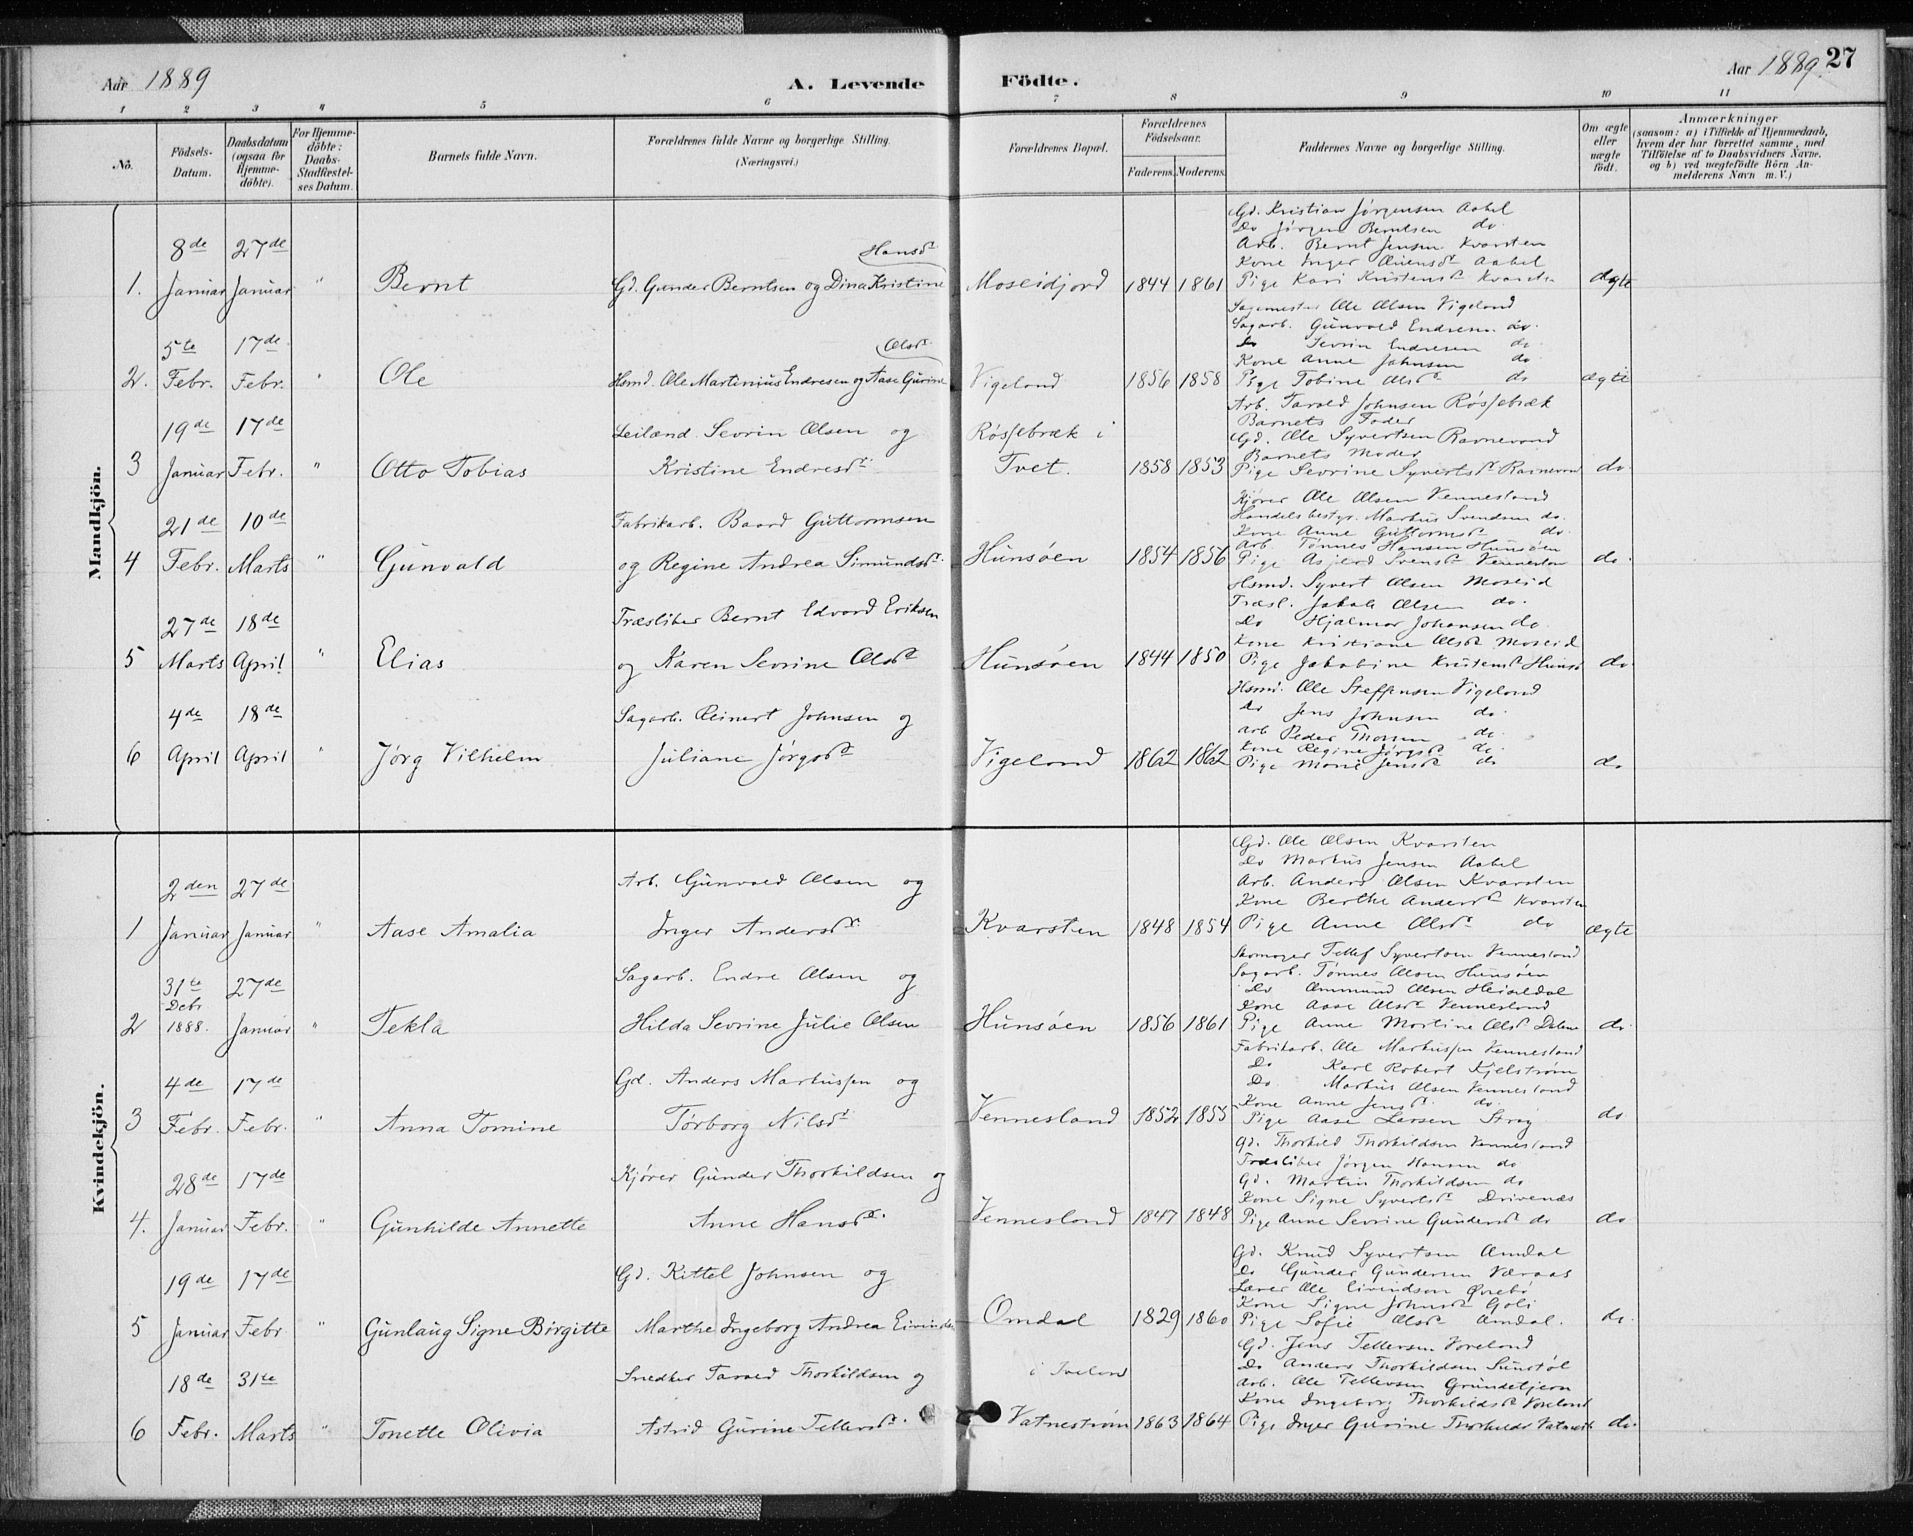 Aar 1889
A. Levende Födte.
Aar 1889.
27
1 2 3 4 5 6 7 8 9 10 11
No.
Födsels-Datum.
Daabsdatum (ogsaa for Hjemme-döbte).
For Hjemme-döbte: Daabs-Stadfæstel-ses Datum.
Barnets fulde Navn.
Forældrenes fulde Navne og borgerlige Stilling. (Næringsvei.)
Forældrenes Bopæl.
Forældrenes Födselsaar.
Faderens. Moderens.
Faddernes Navne og borgerlige Stilling.
Om ægte eller uægte födt.
Anmærkninger
(saasom: a) i Tilfælde af Hjemmedaab,
hvem der har forrettet samme, med
Tilföielse af to Daabsvidners Navne,
og b) ved uægtefödte Börn An-
melderens Navn m. V.)
Mandkjön.
1. 8de Januar 27de Januar " Bernt
Gd. Gunder Berntsen og Dina Kristine Hansdt
Moseidjord 1844 1861
Gd. Kristian Jørgensen Aabel
Do Jørgen Berntsen do.
Arb. Bernt Jensen Kvarsten
Kone Inger Aabel
Pige Kari Kristensdt
ægte
2. 5te Febr. 17de Febr. " Ole
Hsmd. Ole Martinius Endresen og Aase Gurine Olsdt
Vigeland 1856 1858
Sagmester Ole Olsen Vigeland
Sagarb. Gunvald Endresen do.
Do Sevrin Endresen do.
Kone Anne Johnsen do.
Pige Tobine Olsdt do
ægte
3 19de Januar 17de Febr. " Otto Tobias
Leilænd. Sevrin Olsen og
Kristine Endresdt
Røssebræk i Tvet. 1858 1853
Arb. Tarald Johnsen Røssebræk
Barnets Fader
Gd. Ole Syvertsen Ravnevand
Barnets Moder
Pige Sevrine Syvertsdt
do.
4 21de Febr. 10de Marts " Gunvald
Fabrikarb. Baard Guttormsen
og Regine Andrea Simundsdt
Hunsøen 1854 1856
Kjører Ole Olsen Vennesland
Handelsbestyr. Markus Svendsen do.
Kone Anne Guttormsdt do.
Arb. Tønnes Hansen Hunsøen
Pige Asjerd Svensdt Vennesland
do.
5 27de Marts 18de April " Elias
Træsliber Bernt Edvard Eriksen
og Karen Sevrine Olsdt
Hunsøen 1844 1850
Hsmd. Syvert Olsen Moseid
Træsl. Jakob Olsen do.
Do Hjalmar Johansen do.
Kone Kristiane Olsdt Moseid
Pige Jakobine Kristensdt
do.
6 4de April 18de April " Jørg Vilhelm
Sagarb. Reinert Johnsen og
Juliane Jørgsdt
Vigeland 1862 1862
Hsmd. Ole Steffensen Vigeland
Do Jens Johnsen do.
Arb Peder do.
Kone Regine Jørgsdt do.
Pige Marie Jensdt do
do
Kvindekjön.
1 2den Januar 27de Januar " Aase Amalia
Arb. Gunvald Olsen og
Inger Andersdt
Kvarsten 1848 1854
Gd. Ole Olsen Kvarsten
Do Markus Jensen Aabel
Arb. Anders Olsen Kvarsten
Kone Berthe Andersdt Kvarsten
Pige Anne Olsdt do
ægte
2 31te Debr 1888. 27de Januar " Tekla
Sagarb. Endre Olsen og
Hilda Sevrine Julie Olsen
Hunsøen 1856 1861
Skomager Tellef Syvertsen Vennesland
Sagarb. Tønnes Olsen Hunsøen
Do Ommund Olsen Heiseldal
Kone Aase Olsdt Vennesland
Pige Anne Martine Olsdt
do.
3 4de Febr. 17de Febr. " Anna Tomine
Gd. Anders Markussen og
Torborg Nilsdt
Vennesland 1852 1855
Fabrikarb. Ole Markussen Vennesland
Do Karl Robert Kjelstrøm
Do Markus Olsen Vennesland
Kone Anne Jensdt do.
Pige Aase Larsen Stray
do.
4. 28de Januar 17de Febr. " Gunhilde Annette
Kjører Gunder Thorkildsen og
Anne Hansdt.
Vennesland 1847 1848
Gd. Thorkild Thorkildsen Vennesland
Træsliber Jørgen Hansen do
Gd. Martin Thorkildsen do
Kone Signe Syvertsdt Drivenæs
Pige Anne Sevrine Gundersdt do
do
5 19de Januar 17de Febr " Gunlaug Signe Birgitte
Gd. Kittel Johnsen og
Marthe Ingeborg Andrea
Omdal 1829 1860
Gd. Knud Syvertsen Omdal
Do Gunder Gundersen Væraas
Lærer Ole Eivindson Øvebø
Kone Signe Johnsdt
Pige Sofie Olsdt Omdal.
do.
6 18de Febr. 31te Marts " Tonette Olivia
Snedker Tarald Thorkildsen og
Astrid Gurine Tellevsdt.
i Iveland
Vatnestrøm 1863 1864
Gd. Jens Tellevsen Voreland
Do Anders Thorkildsen
Arb. Ole Tellevsen Grundetjern
Kone Ingeborg Thorkildsdt Voreland
Pige Inger Gurine
do.